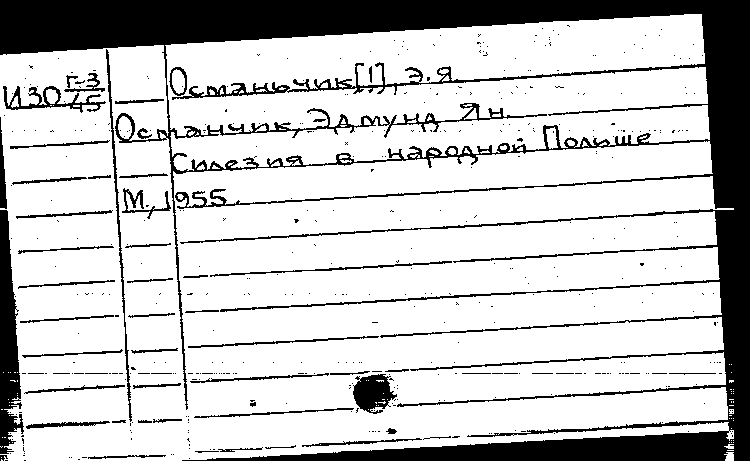 ИЗО Г-3/45
Останьчик[!], Э.Я.
Останчик, Эдмунд Ян.
Силезия в народной Польше
М., 1955.